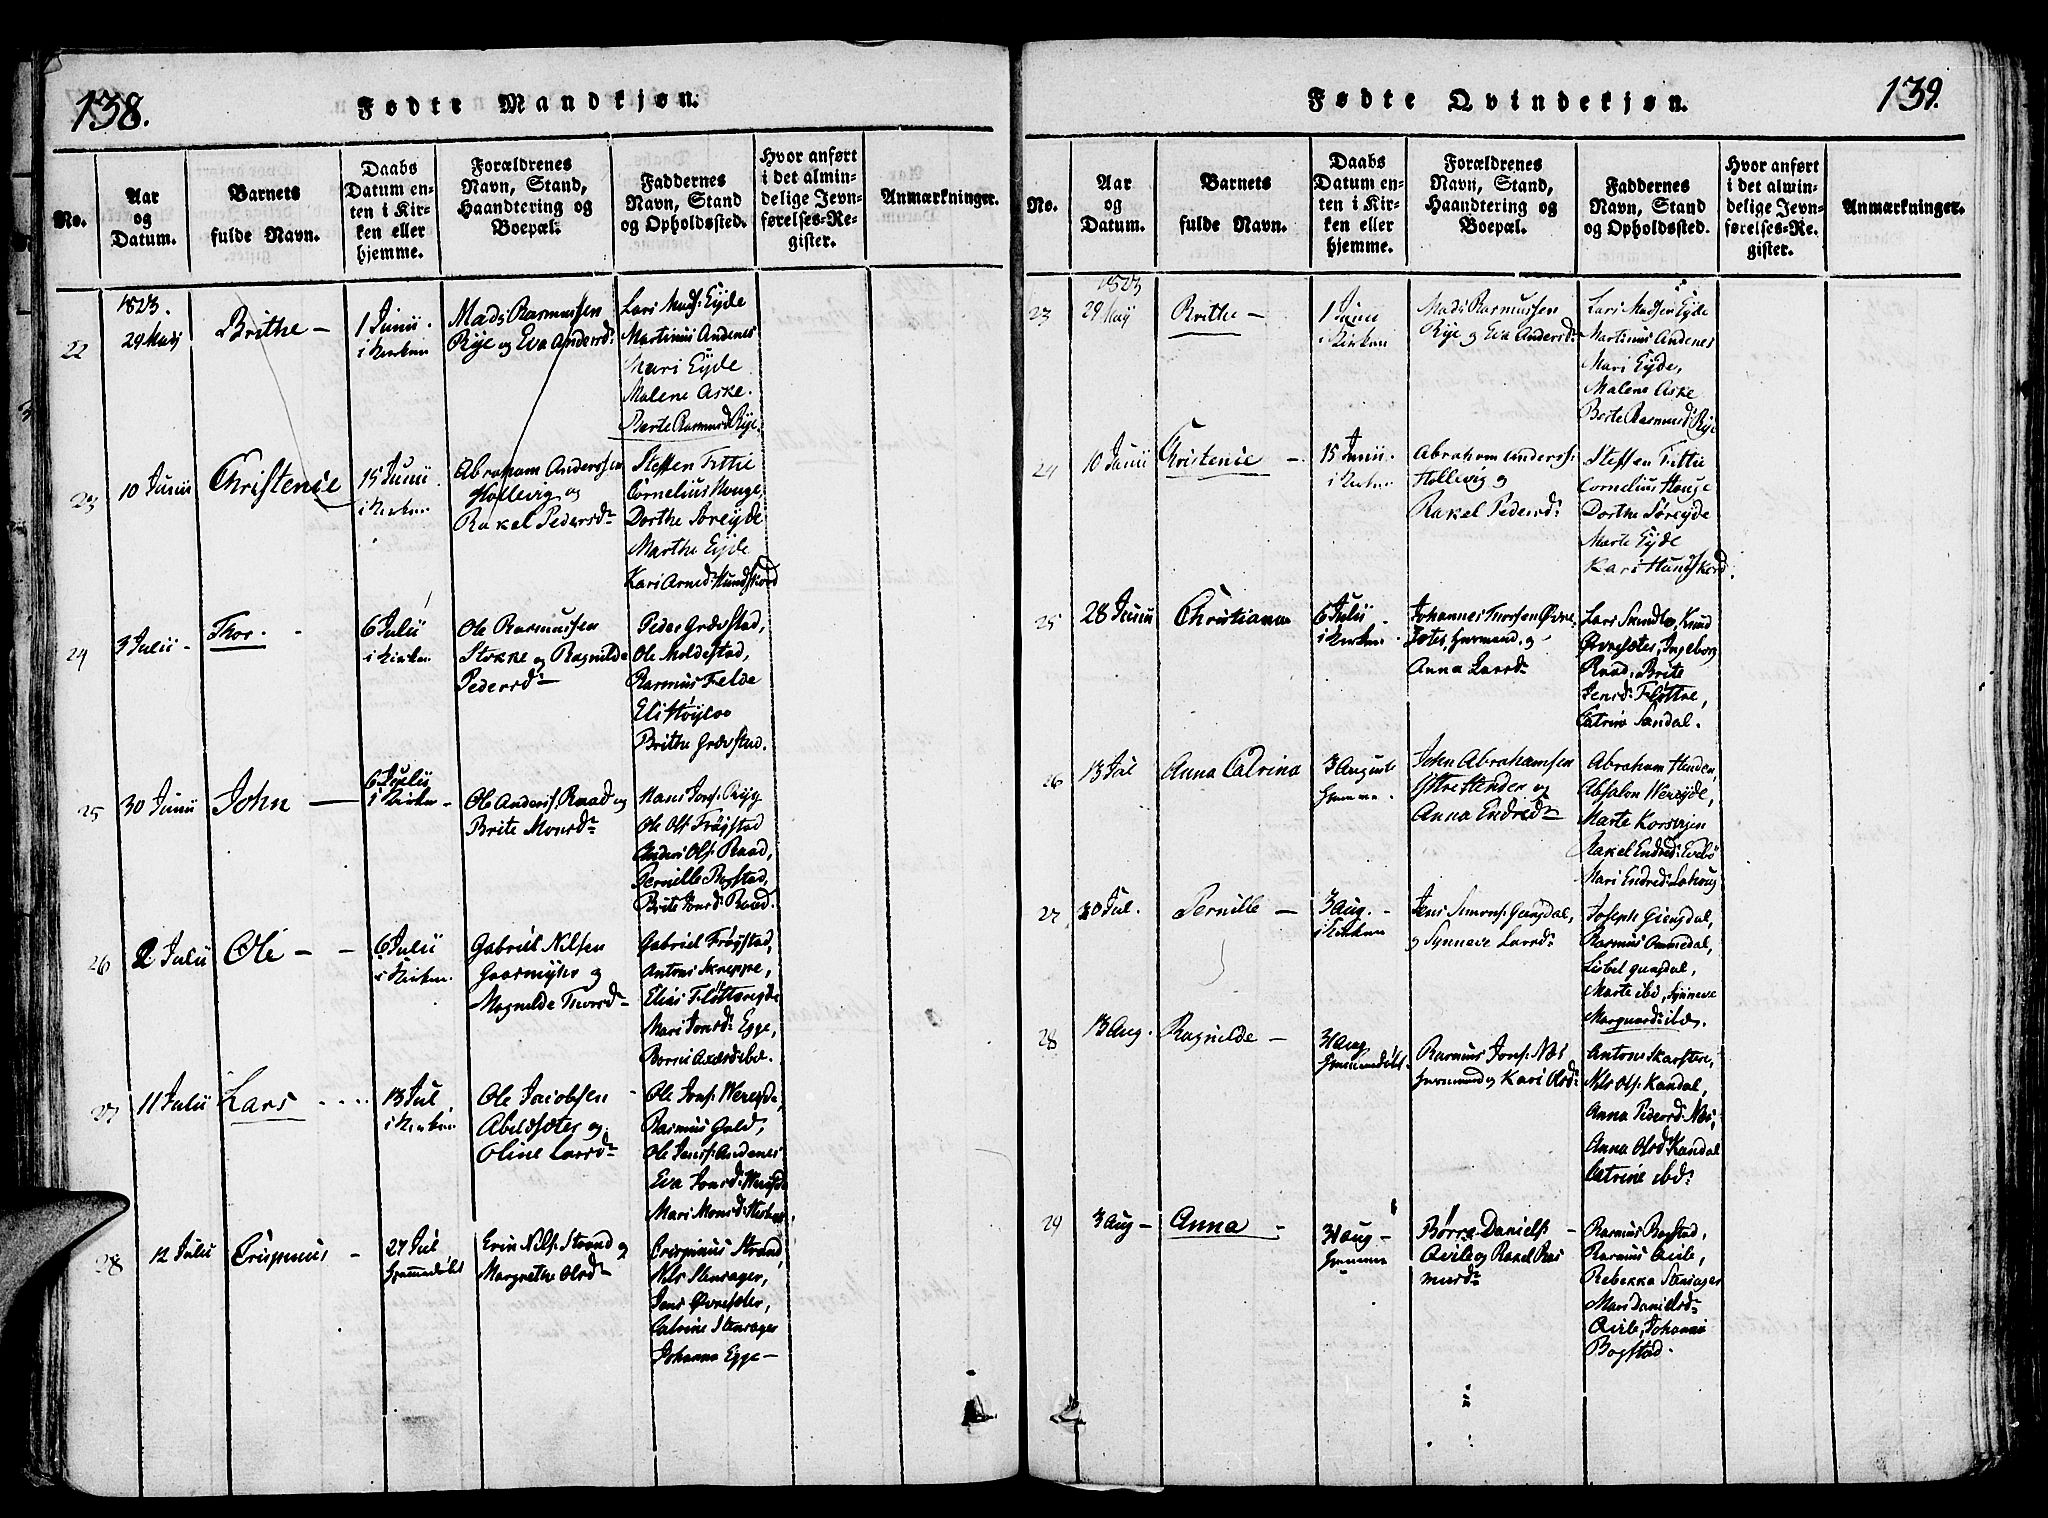 138.
Fødte Mandkjøn.
No.
Aar
og
Datum.
Barnets
fulde Navn.
Daabs
Datum en-
ten i Kir-
ken eller
hjemme.
Forældrenes
Navn, Stand,
Haandtering og
Boepæl.
Faddernes
Navn, Stand
og Opholdssted.
Hvor anført
i det almin-
delige Jevn-
førelses-Re-
gister.
Anmærkninger.
22
1823.
29 Maij
Brithe —
1 Junii.
i Kirken
Mads Rasmussen
Rye og Eva Andersd:
Lars Mads: Eyde
Martinus Andenes
Mari Eyde
Malene Aske.
Berte Rasmusd Rye.
23
10 Junii
Christense
15 Junii.
i Kirken
Abraham Anderssen
Hollevig og
Rakel Pedersdr
Steffen Fittie
Cornelius Houge
Dorthe Søreyde
Marthe Eyde
Kari Arned: Hundskord
24
3 Julii -
Thor. -
6 Julii
i Kirken
Ole Rasmussen
Stokke og Ragnilde
Pedersdr
Peder Grævstad,
Ole Moldestad,
Rasmus Felde
Eli Høyloe
Brithe Grævstad.
25
30 Junii
John —
6 Julii
i Kirken -
Ole Anders: Raad og
Brite Monsdr
Hans Jons: Ryg
Ole Ols: Frøystad
Anders Ols: Raad,
Pernille Bogstad,
Brite Jonsd: Raad.
26
2 Julii
Ole - -
6 Julii
i Kirken.
Gabriel Nilsen
Gaarmyhr og
Magnilde Thorsdr
Gabriel Frøystad,
Antoni Skreppe,
Elias Fløttereyde
Mari Jonsd: Egge,
27
11 Julii
Lars ....
13 Jul
i Kirken
Ole Jacobsen -
Abildsæter og
Oline Larsdr
Ole Jons: Wereyde,
Rasmus Guld,
Ole Jens: Andenes
Eva Jonsd: Wereyde
28
12 Julii
Crispinus -
27 Jul
Erik Nils: Strand og
Margrethe Olsdr
Crispinus Strand,
Nils Stensager,
Jens Øvresæter,
Catrine Stensager
Johanna Egge —
139.
Fødte Qvindekjøn.
No.
Aar
og
Datum.
Barnets
fulde Navn.
Daabs
Datum en-
ten i Kir-
ken eller
hjemme.
Forældrenes
Navn, Stand,
Haandtering og
Boepæl.
Faddernes
Navn, Stand
og Opholdssted.
Hvor anført
i det almin-
delige Jevn-
førelses-Re-
gister.
Anmærkninger.
23
1823
29 May
Brithe —
1 Junii
i Kirken
Mads Rasmussen
Rye og Eva Andersd:
Lars Madsen Eyde
Martinus Andenes
Mari Eyde,
Malene Aske
Berte Rasmusd: Rye
24
10 Junii
Christense -
15 Junii.
i Kirken
Abraham Anderss:
Hollevig og
Rakel Pedersd:
Steffen Fittie
Cornelius Houge
Dorthe Søreyde
Marte Eyde
Kari Hundskord
25
28 Junii
Christiana
6 Julii -
i Kirken
Johannes Thorsen Øvre
Anna Larsdr
Lars Sandløe, Knud
Øvresæter, Ingeborg
Raad, Brite
Jensd: Fløttre,
Catrine Sandal.
26
13 Jul
Anna Catrina
3 August
hjemme.
John Abrahamsen
Ytre Henden og
Anna Endredr
Abraham Henden,
Absalon Wereyde,
Marte Korsveien
Rakel Endred: Evebø
Mari Endred:
27
20 Jul.
Pernille —
3 Aug. -
i Kirken
Jens Simons: Giengdal,
og Synneve Larsdr
Joseph Giengdal,
Rasmus Ommedal,
Lisbet Giengdal,
Marte ibd, Synneve
28
13 Aug.
Ragnilde —
31 Aug
Rasmus Jons: Nes
Huusmand og Kari Olsd:
Antoni Skarsten,
Nils Ols: Kandal,
Anna Pedersd: Nes,
Anna Olsd Kandal
Catrine ibd:
29
3 Aug —
Anna -
31 Aug -
hjemme
Børre Daniels: -
Qvile og Rakel Ras
musdr
Rasmus Bogstad,
Rasmus Qvile,
Rebekka Stensager
Mari Danielsdr
Qvile, Johannes
Bogstad.